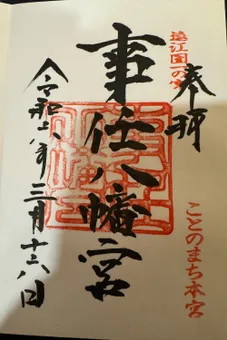 奉拝
遠江国一の宮
ことのまち本宮
事任八幡宮
令和六年三月十六日